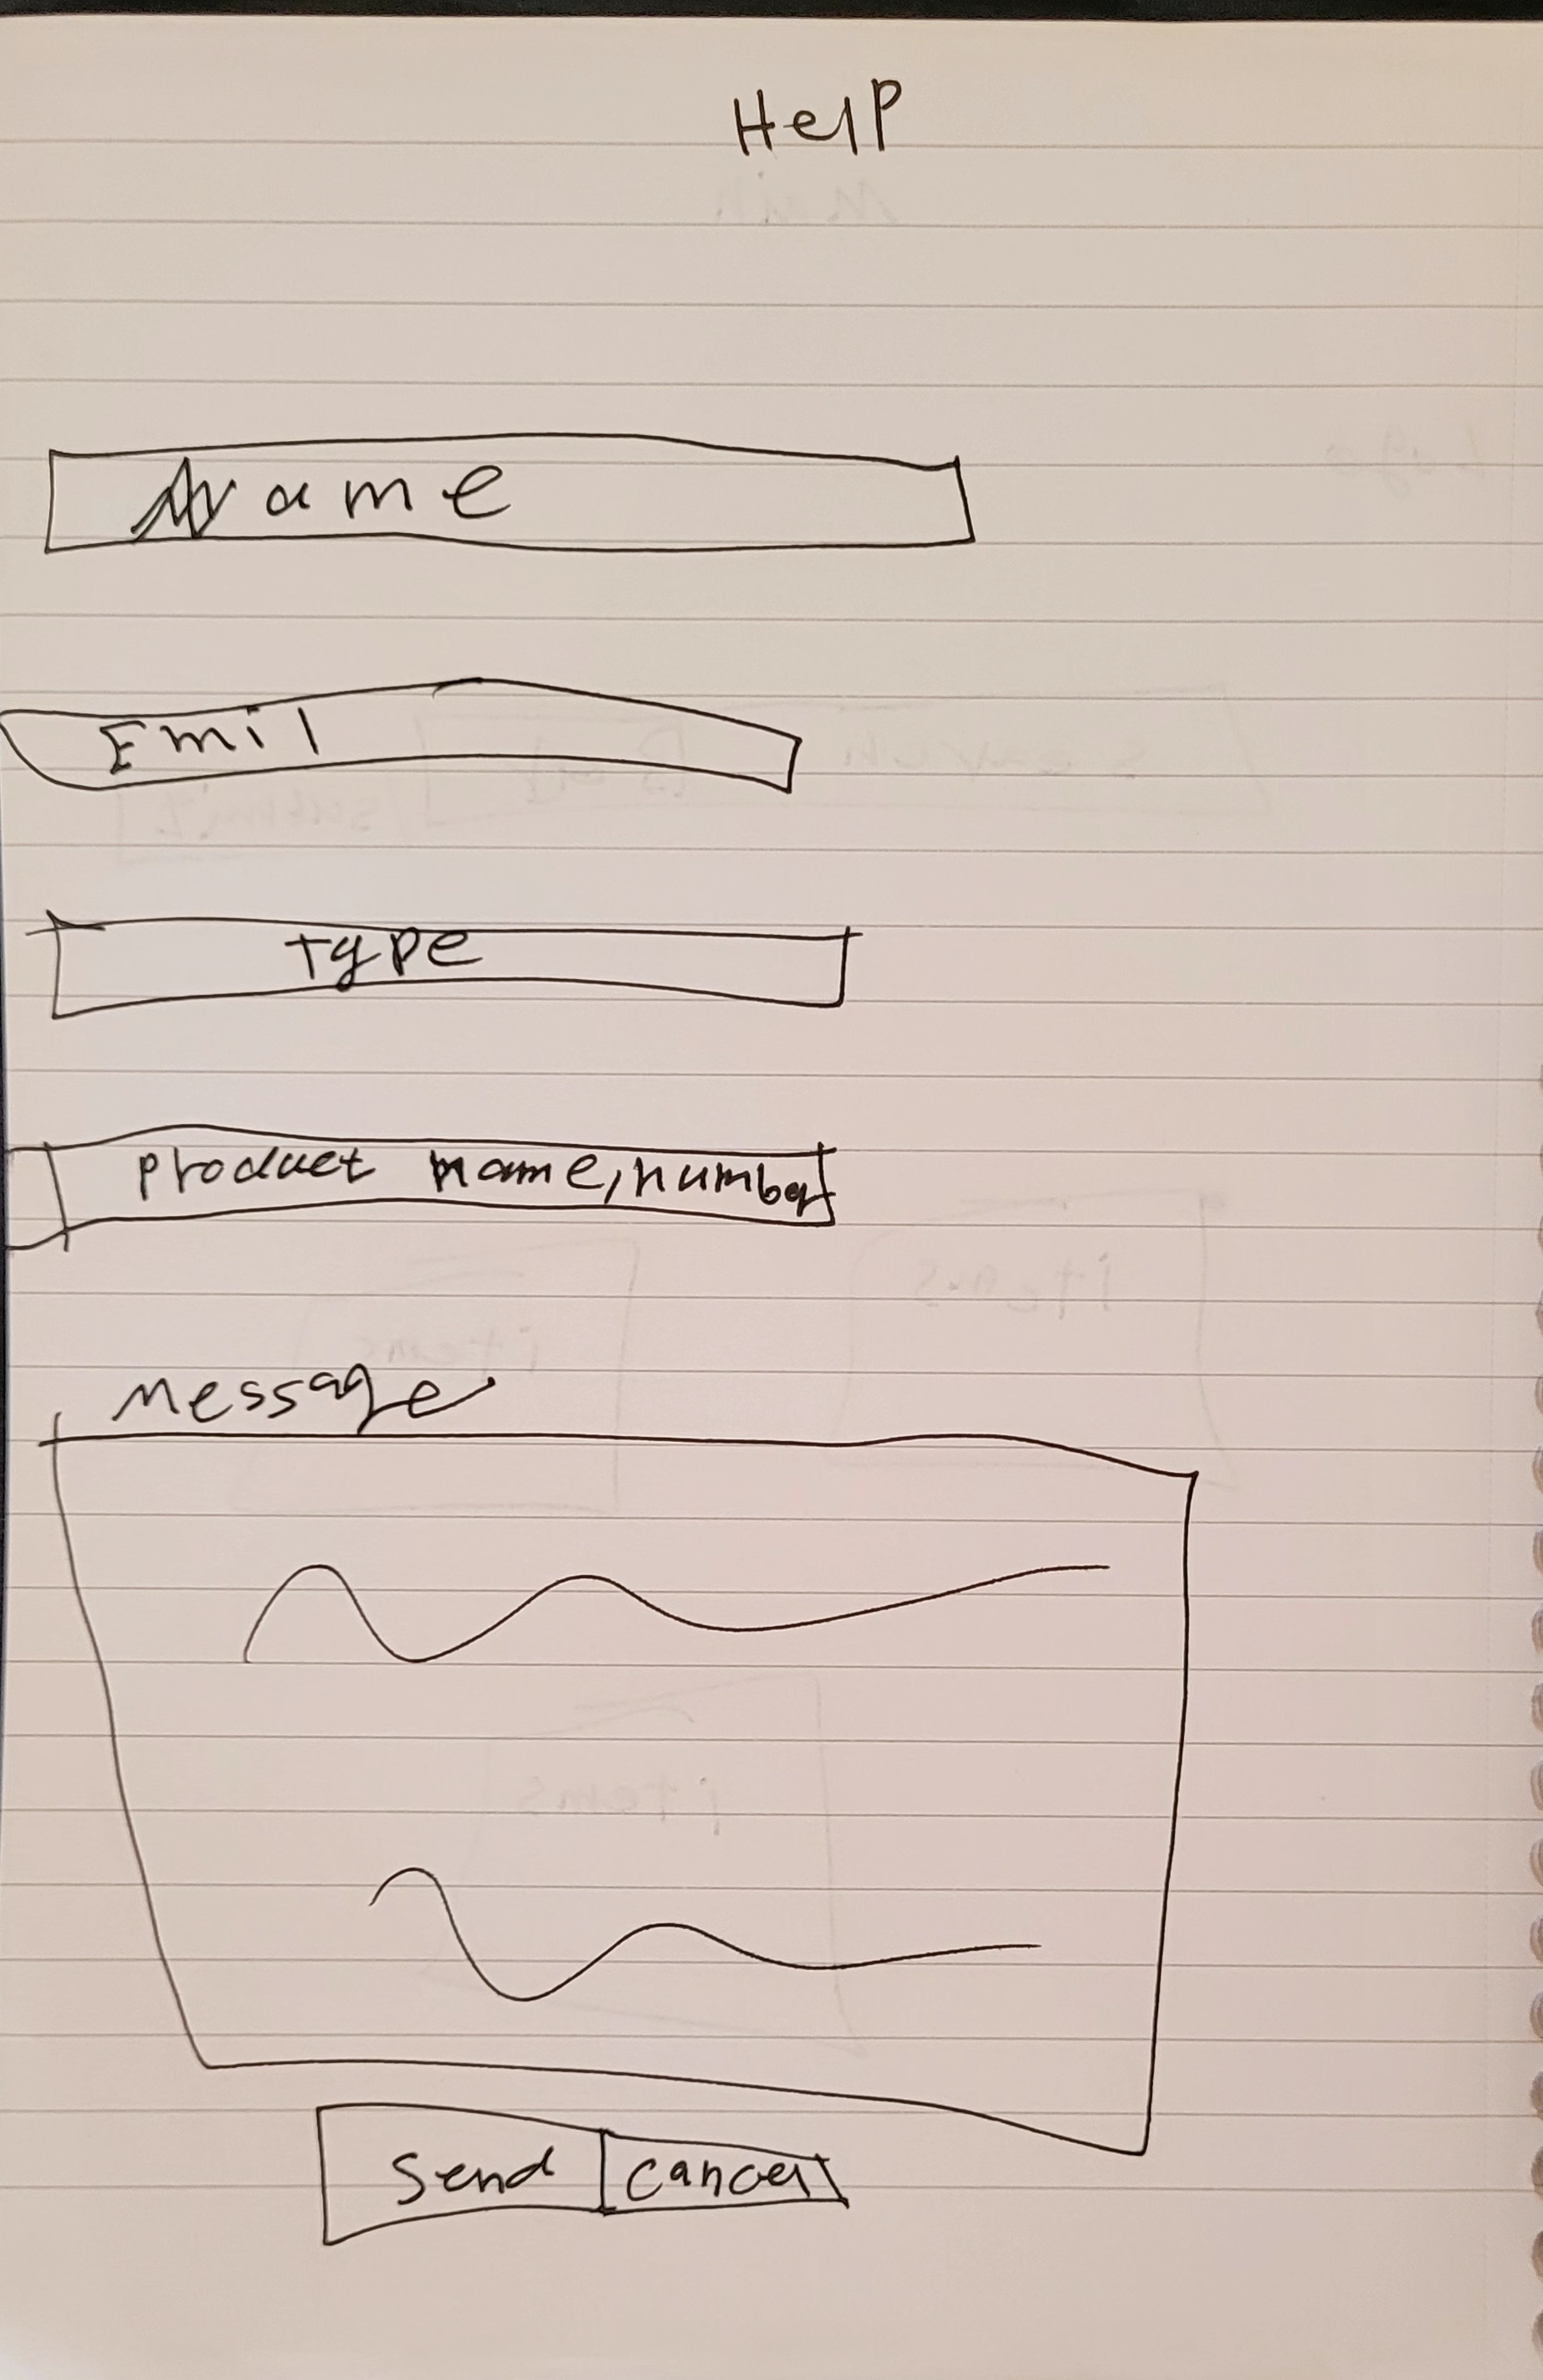 Help
Name
Emil
Type
product name, number
Message
Send cancel